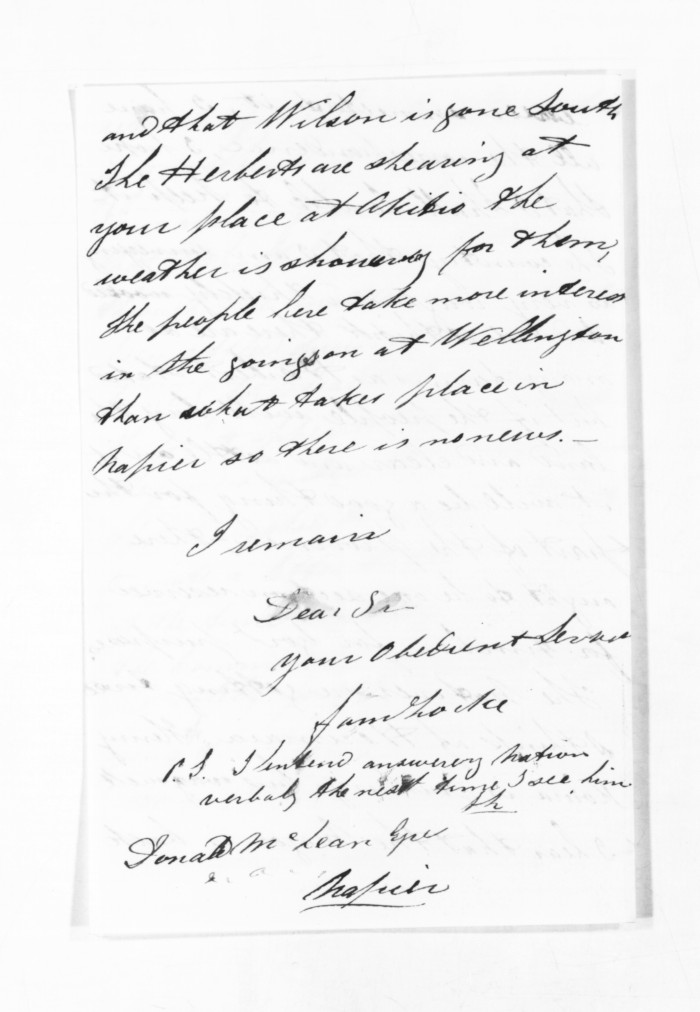 and that Wilson is gone South
The Herberts are shearing at
your place at Akitio the
weather is showery for them,
the people here take more interest
in the goings on at Wellington
than what takes place in
Napier so there is no news. —
I remain
Dear Sr
your Obedient Servant
Saml Locke
P.S. I intend answering Nation
verbaly the next time I see him
SL
Donald McLean Esqre
Napier